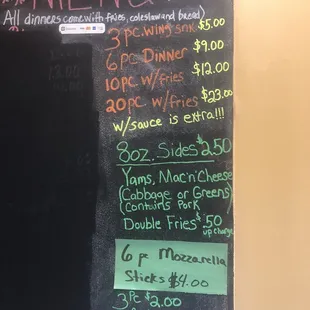 MENU
All dinners come with fries, coleslaw and bread)
3 pc. wing snk $5.00
6 pc Dinner $9.00
10 pc w/fries $12.00
20 pc w/fries $23.00
w/sauce is extra!!!
8oz. Sides $2.50
Yams, Mac'n'Cheese
(Cabbage or Greens)
(Contains Pork)
Double Fries $.50
up charge
6 pc Mozzarella
Sticks $4.00
3 Pc $2.00